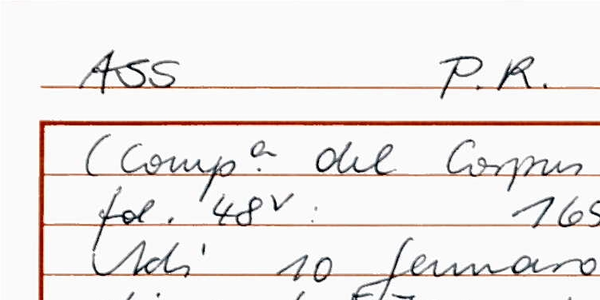 ASS P.R.
(Comp.ª del Corpus
fol. 48v: 165
Adi 10 fennaro